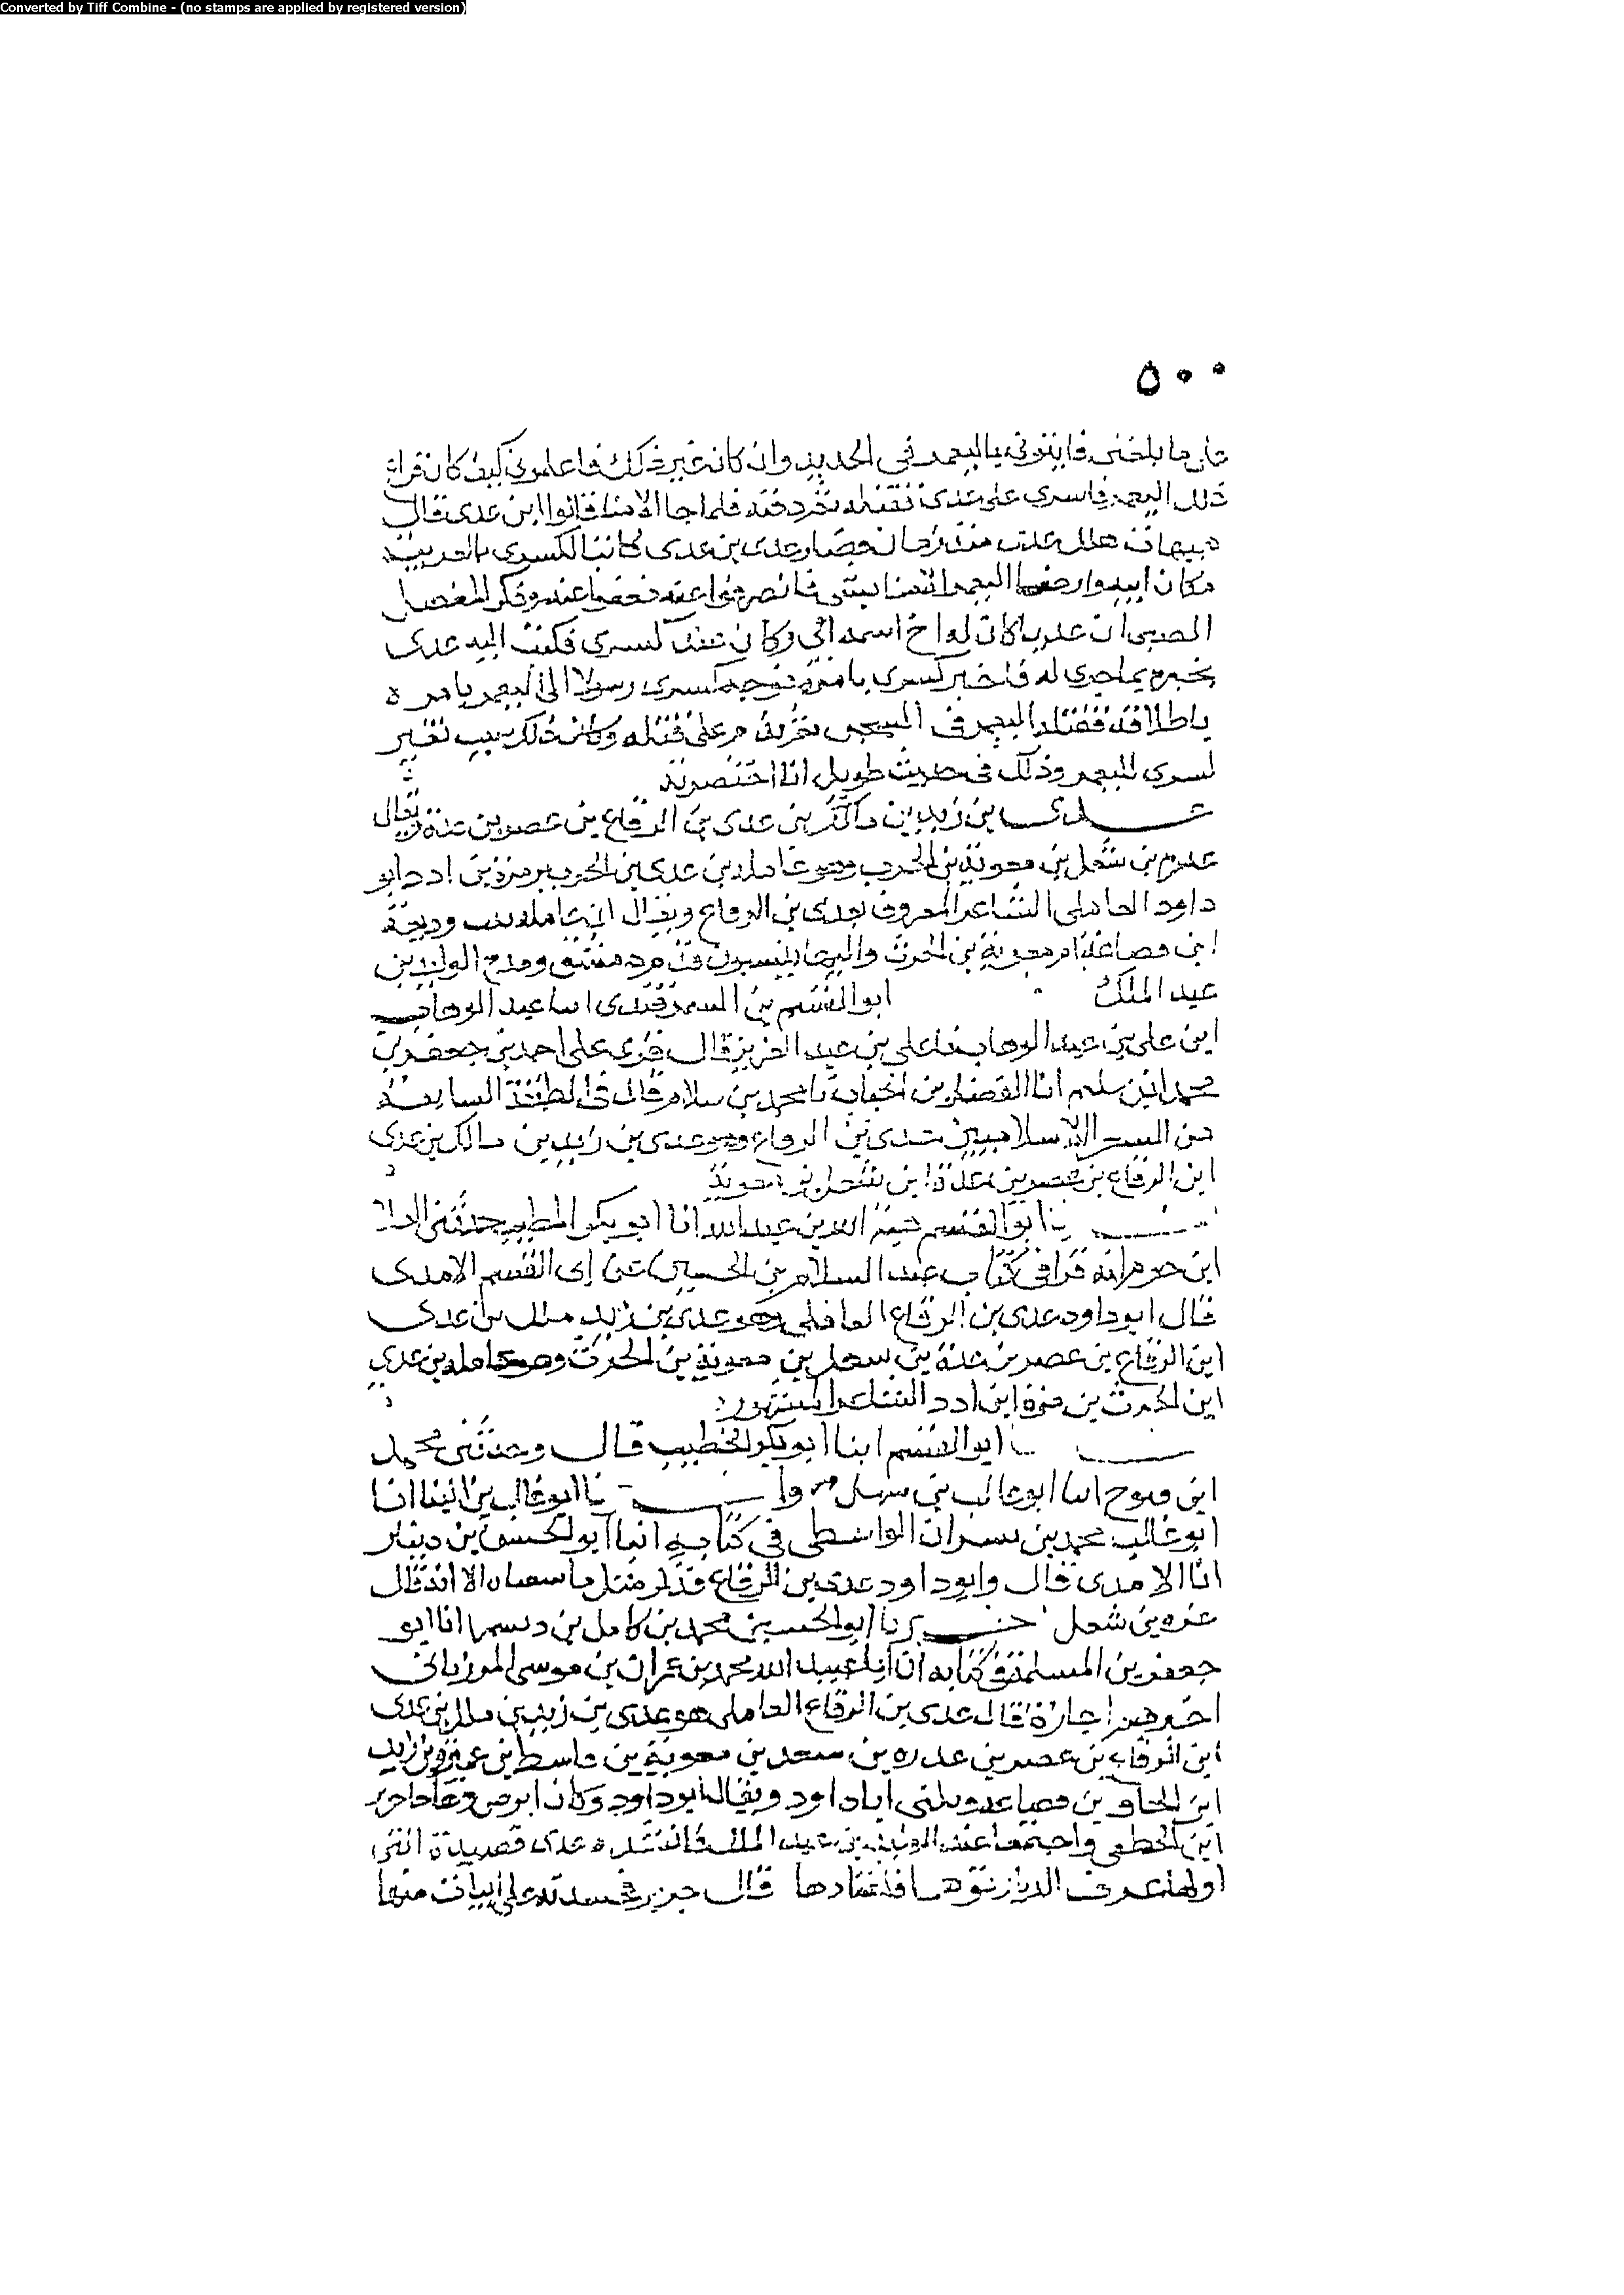 Converted by Tiff Combine - (no stamps are applied by registered version)
٥٠٠
ما بلغنى فايتونى في الحديد وان كان غير ذلك فاعلمونى كيف كان فراى
ذلك فاسرى على عدى فقتله ثم دفنه فلما جا الامنا قالوا اين عدى قال
هيهات هلك عدى منذ زمان عدى بن عدى كاتبا لكسرى بالعربية
مكان ابيه فانصرفوا عنه وذكر المفضل
الضبى ان عديا كان له اخ اسمه ابي وكان عند كسرى فكتب اليه عدى
يخبره بما جرى له فاخبر كسرى بامره فوجه كسرى رسولا الى يامره
باطلاقه فقتله في السجن ثم ندم على قتله وكان ذلك سبب تغير
كسرى وذلك في حديث طويل انا اختصرته
عدى بن زيد بن مالك بن عدى بن الرقاع بن عصر بن عدة ويقال
بن شعل بن معوية بن الحرث وهو عاملة بن عدى بن الحرث بن مرة بن ادد ابو
داود العاملى الشاعر المعروف بعدى بن الرقاع ويقال ان عاملة بنت وديعة
ابن قضاعة ام معوية بن الحرث واليها ينسبون قدم دمشق ومدح الوليد بن
عبد الملك ابو القسم بن السمرقندى انبا عبد الوهاب
ابن على بن عبد الوهاب على بن عبد العزيز قال قرى على احمد بن جعفر بن
محمد ابن سلم انا الفضل بن الحباب نا محمد بن سلام قال في الطبقة السابعة
من الاسلاميين عدى بن الرقاع وهو عدى بن زيد بن مالك بن عدى
ابن الرقاع بن عصر بن عدة ابن شعل بن معوية
نا ابو القسم هبة الله بن عبد الله انا ابو بكر الخطيب حدثنى
ابن حرم انه قرا في كتاب عبد السلام بن الحسين عن ابى القسم الامدى
قال ابو داود عدى بن الرقاع العاملى وهو عدى بن زيد بن مالك بن عدى
ابن الرقاع بن عصر بن عدة بن شعل بن معوية بن الحرث وهو عاملة بن عدى
ابن الحرث بن مرة ابن ادد الشاعر المشهور
نا ابو القسم ابنا ابو بكر الخطيب قال وحدثنى محمد
ابن فتوح انبا ابو غالب بن سهل نا ابو غالب بن البنا انا
ابو غالب محمد بن بشران الواسطى في كتابه انبا ابو الحسين بن دينار
انا الامدى قال وابو داود عدى بن الرقاع فذكر مثل ما سقناه الا انه قال
عزه بن شعل اخبرنا ابو الحسين محمد بن كامل بن ديسم انا ابو
جعفر بن المسلمة في كتابه انا ابو عبيد الله محمد بن عمران بن موسى المرزبانى
اجازة قال عدى بن الرقاع العاملى هو عدى بن زيد بن مالك بن عدى
ابن الرقاع بن عصر بن عدره بن سعد بن معوية بن قاسط بن عميرة بن زيد
ابن الحاف بن قضاعة ويكنى ابا داود ويقال ابو داود وكان ابرص وهاجا جرير
ابن الخطفى واجتمعا عند الوليد بن عبد الملك فانشده عدى قصيدة التى
اولها عرف الديار توهما فاعتادها قال جرير فحسدته على ابيات منها